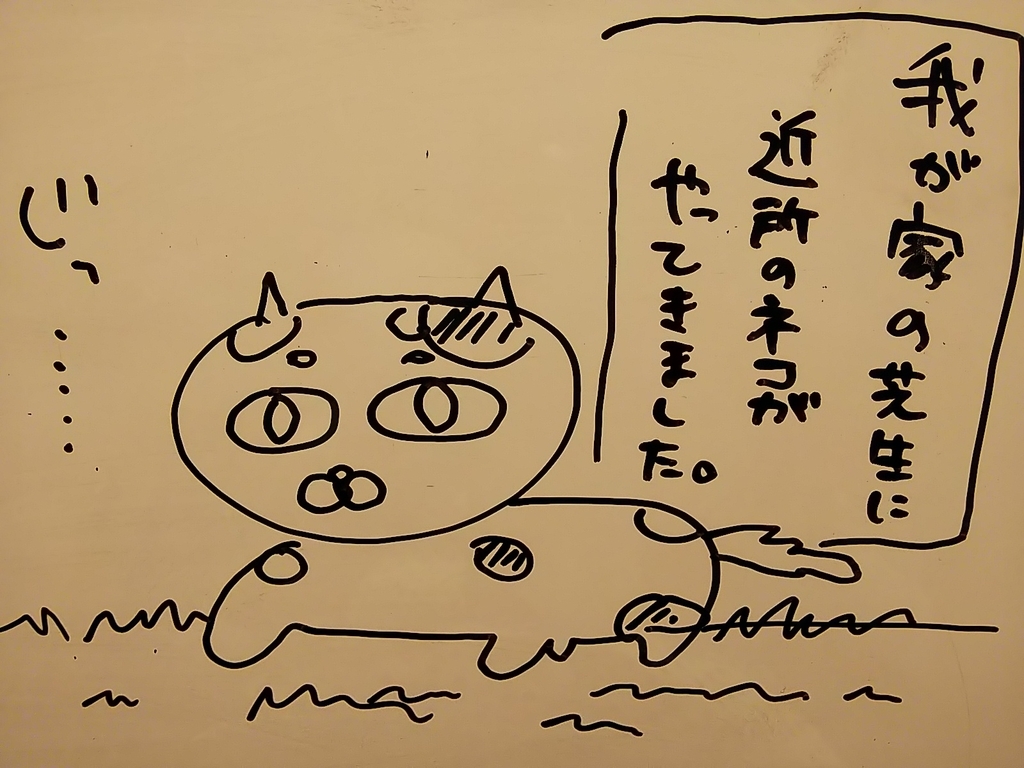 我が家の芝生に
近所のネコが
やってきました。
じっ
……